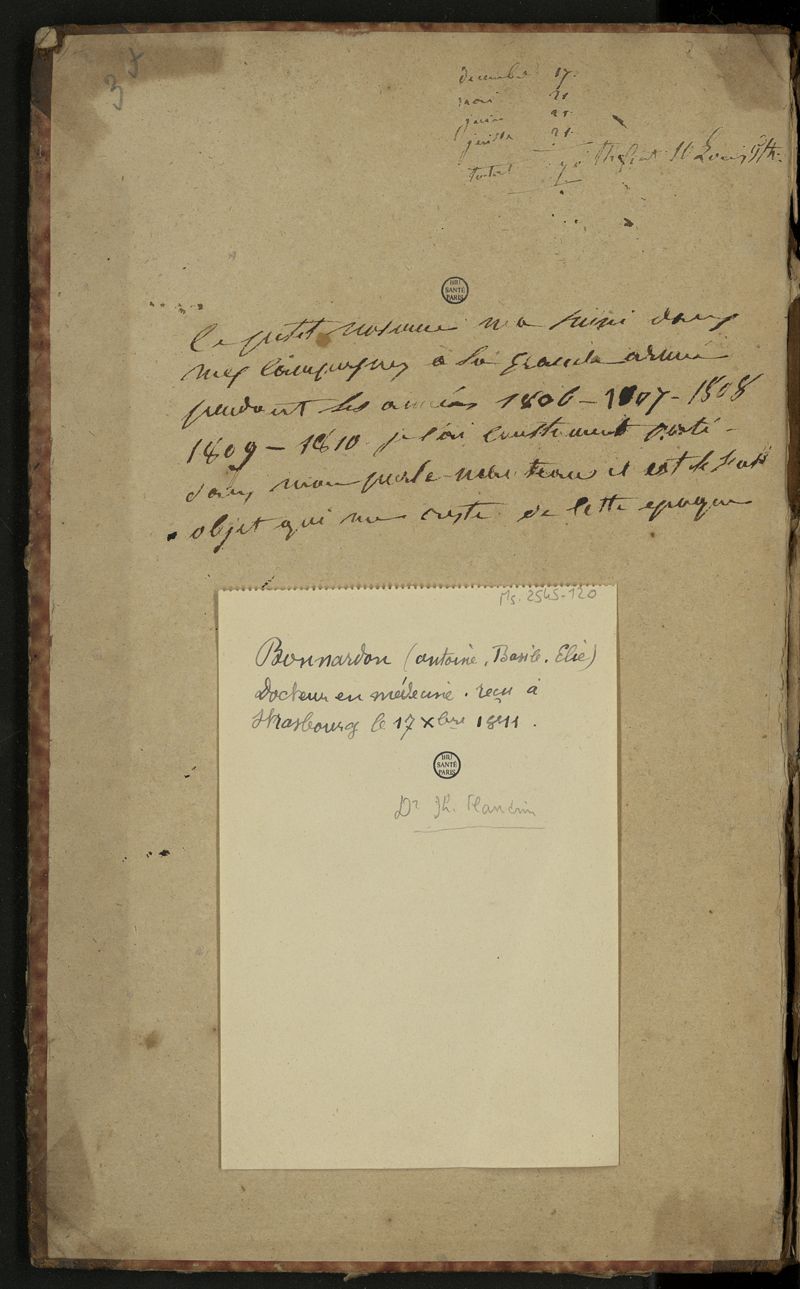 37
decembre 17.
mai 21
juin 21
total 90
10 Louis
BIU
SANTÉ
PARIS
Ce petit volume m'a suivi dans
mes Campagnes a la grande armée
pendant les années 1806 - 1807 - 1808
1809 - 1810 je l'ai constament porté
dans mon porte-manteau il est le seul
objet qui me reste de cette epoque
Ms. 2545-120
Bonnardon (Antoine, Basile, Elie)
Docteur en médecine. reçu à
Strasbourg le 17 Xbre 1811.
BIU
SANTÉ
PARIS
Dr